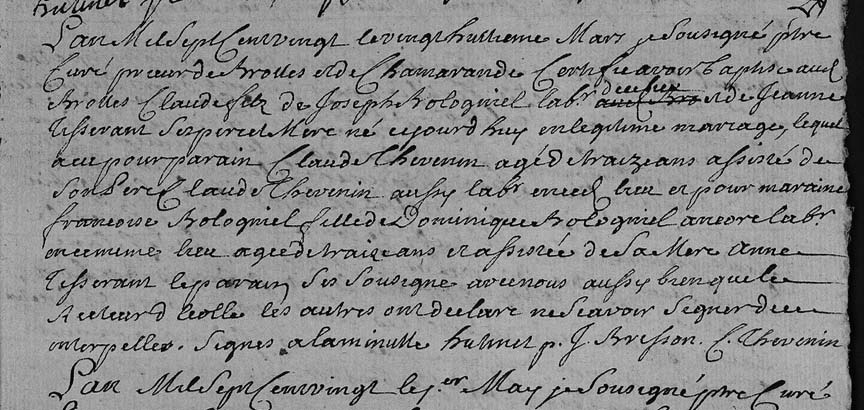 L'an Mil Sept Cent vingt le vingt huitieme Mars je Sousigné p̃tre
Curé prieur de Brottes et de Chamarande Certifie avoir baptisé aud
Brottes Claude filz de Joseph Bologniel labr dud lieu et de Jeanne
Tisserant Ses pere et Mere né cejourd huy en legitime mariage, lequel
a eu pour parain Claude Thevenin agé de traize ans assisté de
Son Pere Claude Thevenin aussy labr en ced lieu et pour maraine
francoise Bologniel fille de Dominique Bologniel ancore labr
en ce meme lieu agée de traize ans et assistée de Sa Mere Anne
Tisserant le parain S'es Sousigné avec nous aussy bien que le
Recteur d'Ecolle les autres ont declaré ne Scavoir Signer de ce
interpellés. Signés a la minutte hutinet p. J. Bresson. C. Thevenin
L'an Mil Sept Cent vingt le 1.er May je Sousigné p̃tre Curé